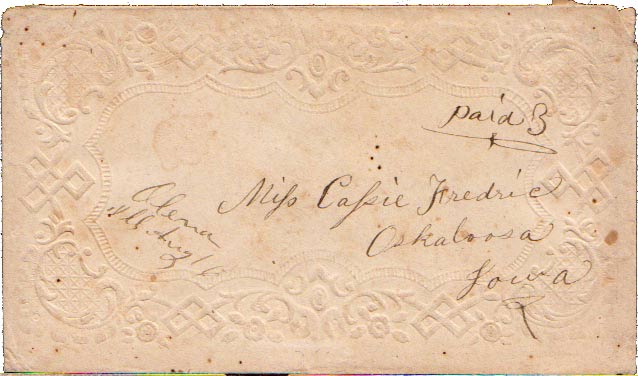 paid 3
Miss Cassie Fredric
Oskaloosa
Iowa
Olena
Ill Aug